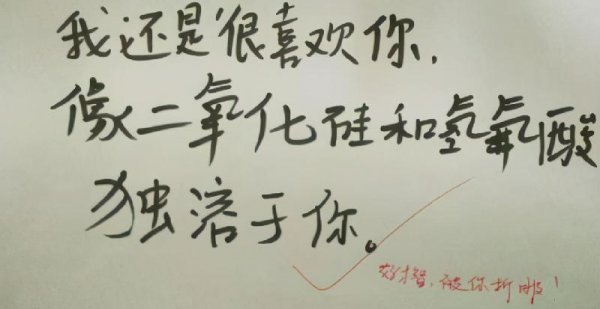 我还是很喜欢你,
像二氧化硅和氢氧酸
独溶于你。
好才智,被你折服!